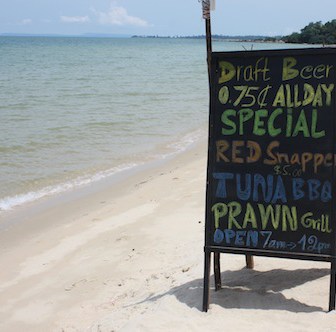 Draft Beer
0.75¢ ALLDAY
SPECIAL
RED Snappe
$5.00
TUNA BBQ
PRAWN Grill
OPEN 7am → 12pm